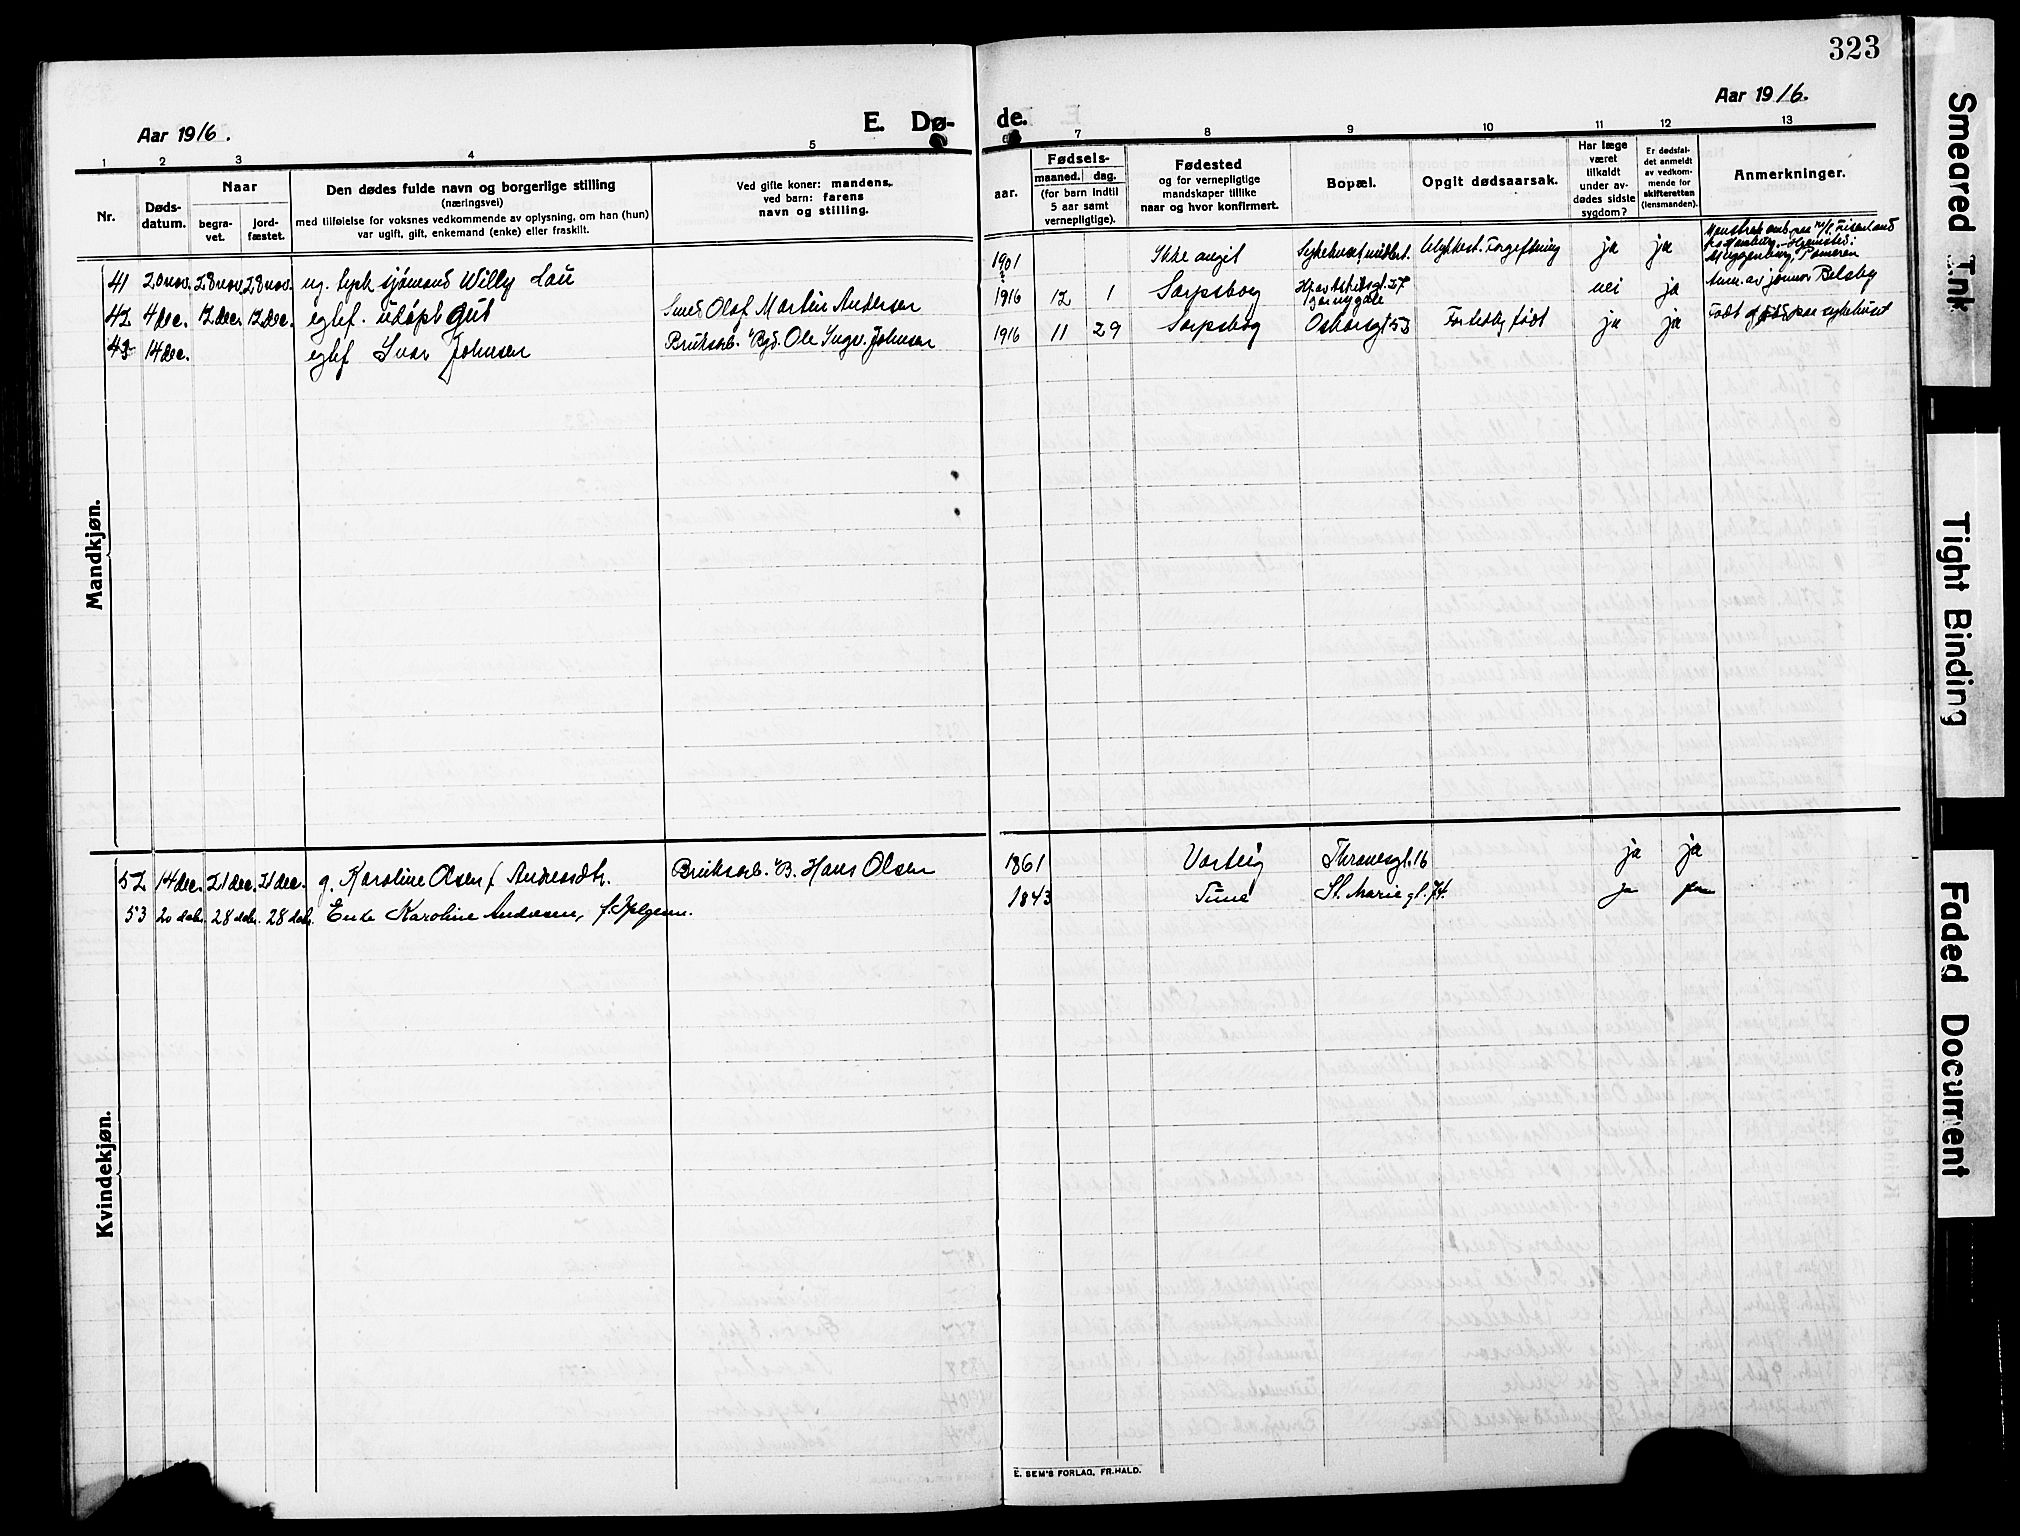 323
Aar 1916.
E. Dø-
de.
Aar 1916.
1 2 3 4 5 7 8 9 10 11 12 13
Nr.
Døds-
datum.
Naar
begra-
vet.
jord-
fæstet.
Den dødes fulde navn og borgerlige stilling
(næringsvei)
med tilføielse for voksnes vedkommende av oplysning, om han (hun)
var ugift, gift, enkemand (enke) eller fraskilt.
Ved gifte koner: mandens,
ved barn: farens
navn og stilling.
aar.
Fødsels-
maaned. dag.
(for barn indtil
5 aar samt
vernepligtige).
Fødested
og for vernepligtige
mandskaper tillike
naar og hvor konfirmert.
Bopæl.
Opgit dødsaarsak.
Har læge
været
tilkaldt
under av-
dødes sidste
sygdom?
Er dødsfal-
det anmeldt
av vedkom-
mende for
skifteretten
(lensmanden).
Anmerkninger.
Mandkjøn.
41 20 nov. 28 nov. 28 nov. ug. tysk sjømand Willy Lau 1901 Ikke angit Forgiftning ja ja
42 4 dec. 12 dec. 12 dec. egtef. udøpt gut Smed Olaf Martin Andersen 1916 12 1 Sarpsborg nei ja
43 14 dec. egtef. Ivar Johnsen Bruksarb. Ole Ingv. Johnsen 1916 11 29 Sarpsborg Oskarsgt 53 født ja ja Født paa sykehuset
Kvindekjøn.
52 14 dec. 21 dec. 21 dec. g. Karoline Olsen f. Andreasdtr. Bruksarb. B. Hans Olsen 1861 Varteig Thranesgt. 16 ja ja
53 20 dcbr. 28 dcbr. 28 dcbr. Enke Karoline Andersen, f. Helgesen. 1843 Tune St. Marie gt. 74. ja ja
E. SEM'S FORLAG, FR.HALD.
Smeared Ink
Tight Binding
Faded Document